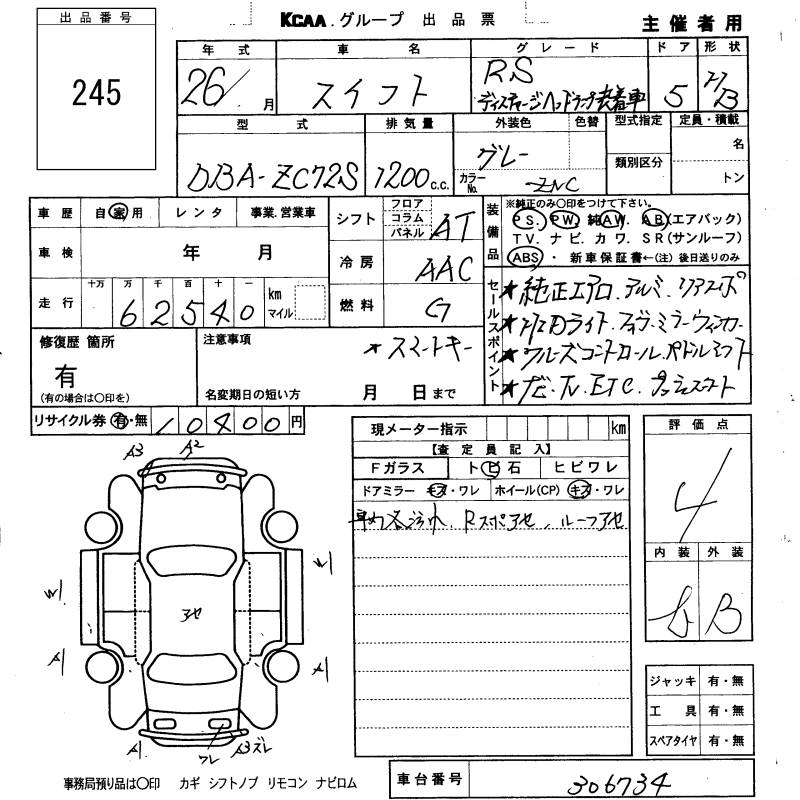 出品番号
245
KCAA.グループ 出品票
主催者用
年式 車名 グレード ドア 形状
26/ 月 スイフト RS 5 HB
ディスチャージヘッドランプ装着車
型式 排気量 外装色 色替 型式指定 定員・積載
DBA-ZC72S 1200 c.c. グレー 名
カラーNo. ZNC 類別区分 トン
車歴 自家用 レンタ 事業.営業車
シフト フロア コラム パネル AT
装備品 ※純正のみ〇印をつけて下さい。
PS. PW. 純AW. AB(エアバック)
TV. ナビ. カワ. SR(サンルーフ)
ABS・ 新車保証書←(注) 後日送りのみ
車検 年 月
冷房 AAC
走行 十万 万 千 百 十 一 km マイル
62540
燃料 G
セールスポイント
★純正エアロ.アルミ.リアスポ
★HIDライト.フォグ.ミラーウィンカー
★クルーズコントロール.パドルシフト
★ナビ.TV.ETC.プッシュスタート
修復歴 箇所
有
(有の場合は〇印を)
注意事項
★スマートキー
名変期日の短い方 月 日まで
リサイクル券 有・無 10400円
現メーター指示 km
【査定員記入】
Fガラス トビ石 ヒビワレ
ドアミラー キズ・ワレ ホイール(CP) キズ・ワレ
Rスポアセ、ルーフアセ
評価点
4
内装 外装
B B
A3 A2
W1 W1
アセ
A1 A1
A1 ワレ A3ズレ
ジャッキ 有・無
工具 有・無
スペアタイヤ 有・無
事務局預り品は〇印 カギ シフトノブ リモコン ナビロム
車台番号 306734